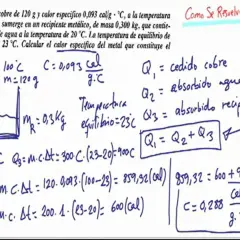 cobre de 120 g y calor específico 0,093 cal/g · °C, a la temperatura
sumerge en un recipiente metálico, de masa 0,300 kg. que contie-
e agua a la temperatura de 20 °C. La temperatura de equilibrio de
23 °C. Calcular el calor específico del metal que constituye el
Como Se Resuelv
100°C
m=120g
C=0,093 cal/g.C
Q1 = cedido cobre
Q2 = absorbido agua
Q3 = absorbido recip
Temperatura
equilibrio=23°C
mR=0,3Kg
Q1 = Q2 + Q3
Q3=m.c.Δt=300.C.(23-20)=900C
m.c.Δt = 120.0,093.(100-23) = 859,32(cal)
m.c.Δt = 200.1.(23-20) = 600(cal)
859,32 = 600+9
C=0,288 cal/g.